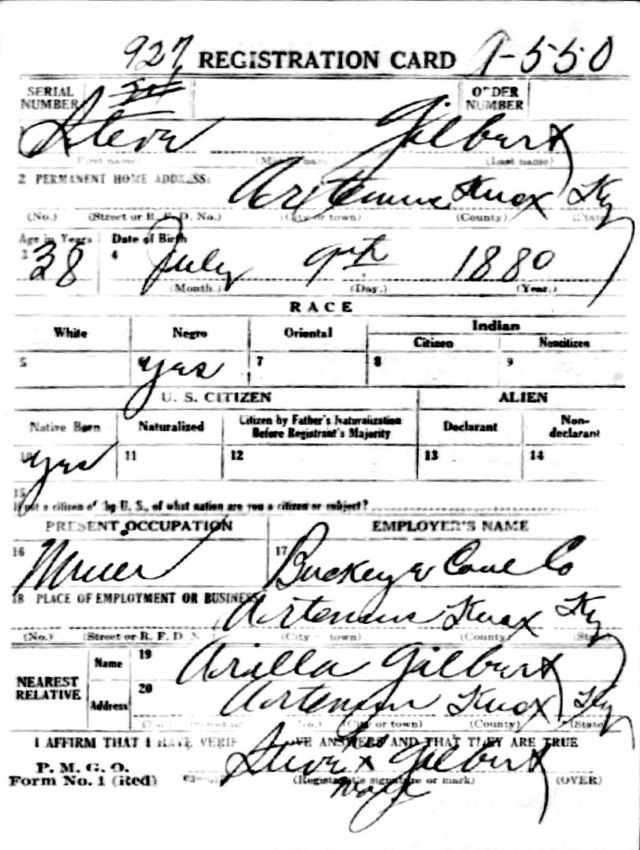 927 REGISTRATION CARD A-550
SERIAL NUMBER ORDER NUMBER
Steve Gilbert
(First name) (Middle name) (Last name)
2 PERMANENT HOME ADDRESS: Artemus Knox Ky
(No.) (Street or R. F. D. No.) (City or town) (County) (State)
Age in Years Date of Birth
3 38 4 July 9th 1880
(Month.) (Day.) (Year.)
RACE
White Negro Oriental Indian
Citizen Noncitizen
5 yes 7 8 9
U. S. CITIZEN ALIEN
Native Born Naturalized Citizen by Father's Naturalization Before Registrant's Majority Declarant Non-declarant
10 yes 11 12 13 14
15
If not a citizen of the U. S., of what nation are you a citizen or subject?
PRESENT OCCUPATION EMPLOYER'S NAME
16 Miner 17 Buckeye Coal Co
18 PLACE OF EMPLOYMENT OR BUSINESS
Artemus Knox Ky
(No.) (Street or R. F. D. No.) (City or town) (County) (State)
NEAREST RELATIVE
Name 19 Arilla Gilbert
Address 20 Artemus Knox Ky
(No.) (City or town) (County) (State)
I AFFIRM THAT I HAVE VERIFIED ABOVE ANSWERS AND THAT THEY ARE TRUE
P. M. G. O.
Form No. 1 (Red)
Steve x Gilbert
his
mark
(Registrant's signature or mark) (OVER)